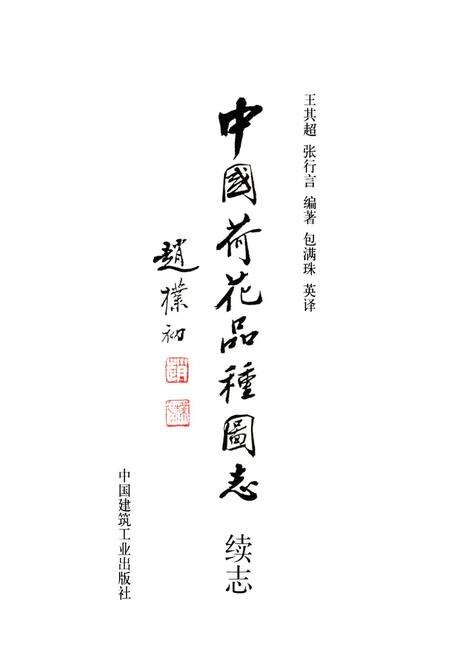 王其超 张行言 编著 包满珠 英译
中國荷花品種圖志
续志
趙樸初
中国建筑工业出版社